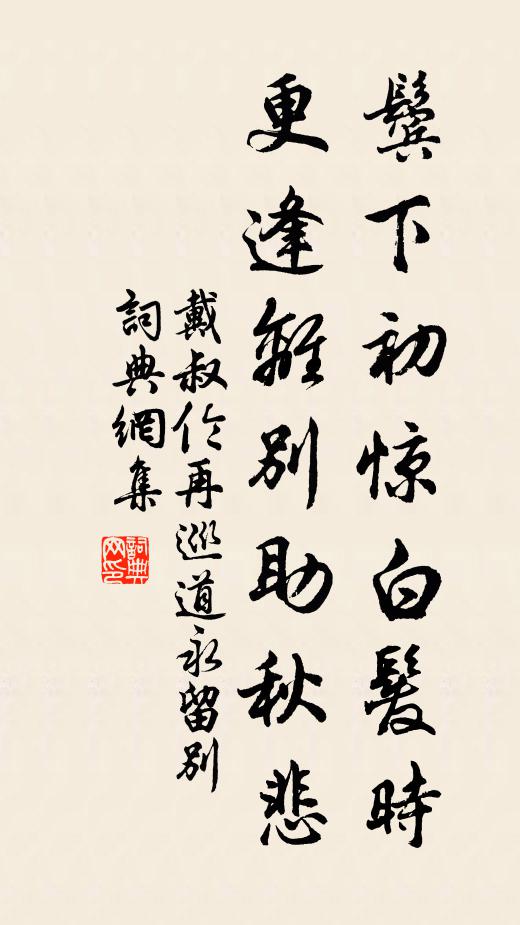 鬓下初惊白髮時
更逢離别助秋悲
戴叔伦再巡道永留别
詞典網集
詞典網印